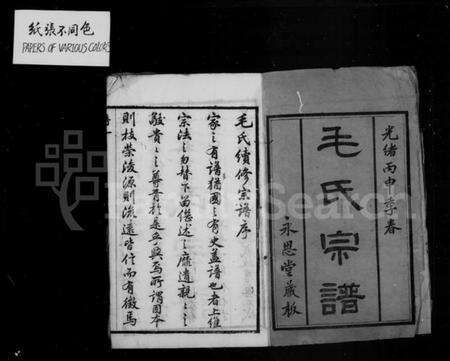 紙張不同色
PAPERS OF VARIOUS COLORS
光緒丙申季春
毛氏宗譜
永思堂藏板
毛氏續修宗譜序
家之有譜猶國之有史蓋譜也者上維
宗法之勿替下啚緦述之靡遺親之之
敬貴之之尊胥於是乎興焉所謂固本
則枝榮浚源則流遠皆信而有徵焉
FamilySearch